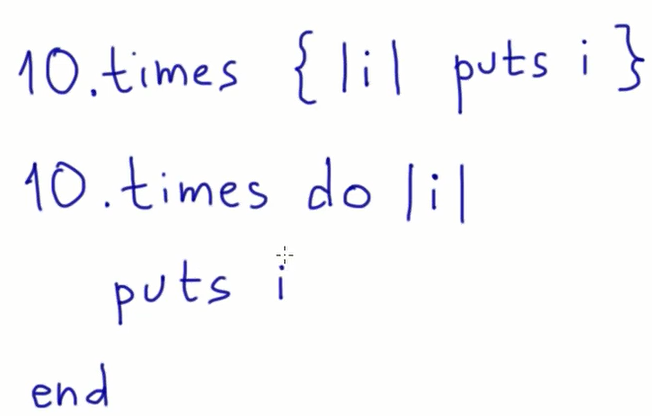 10.times { |i| puts i }
10.times do |i|
puts i
end